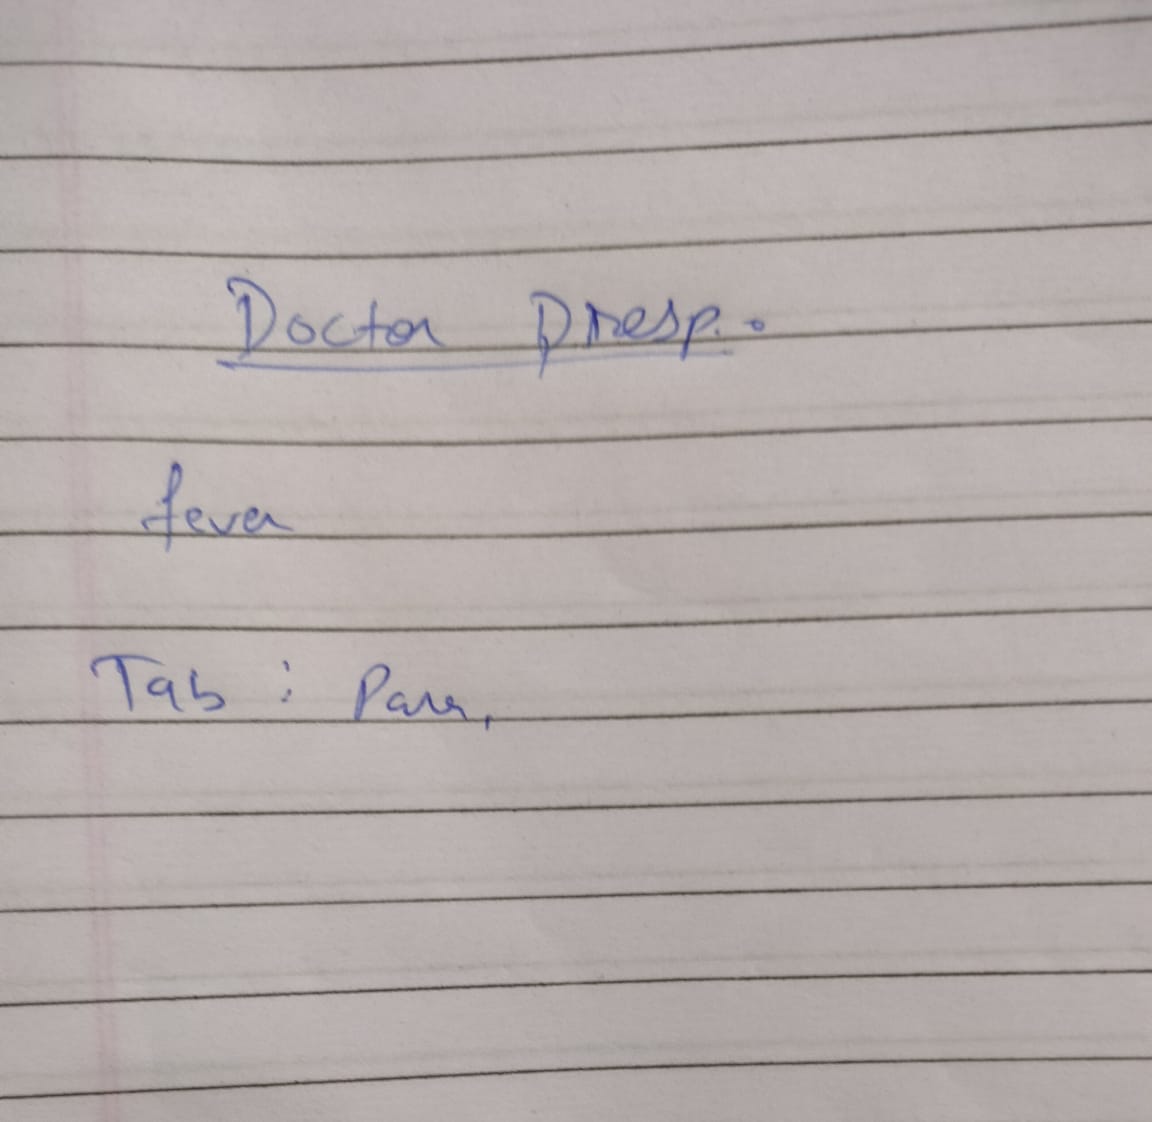 Doctor Presp.
fever
Tab : Para,